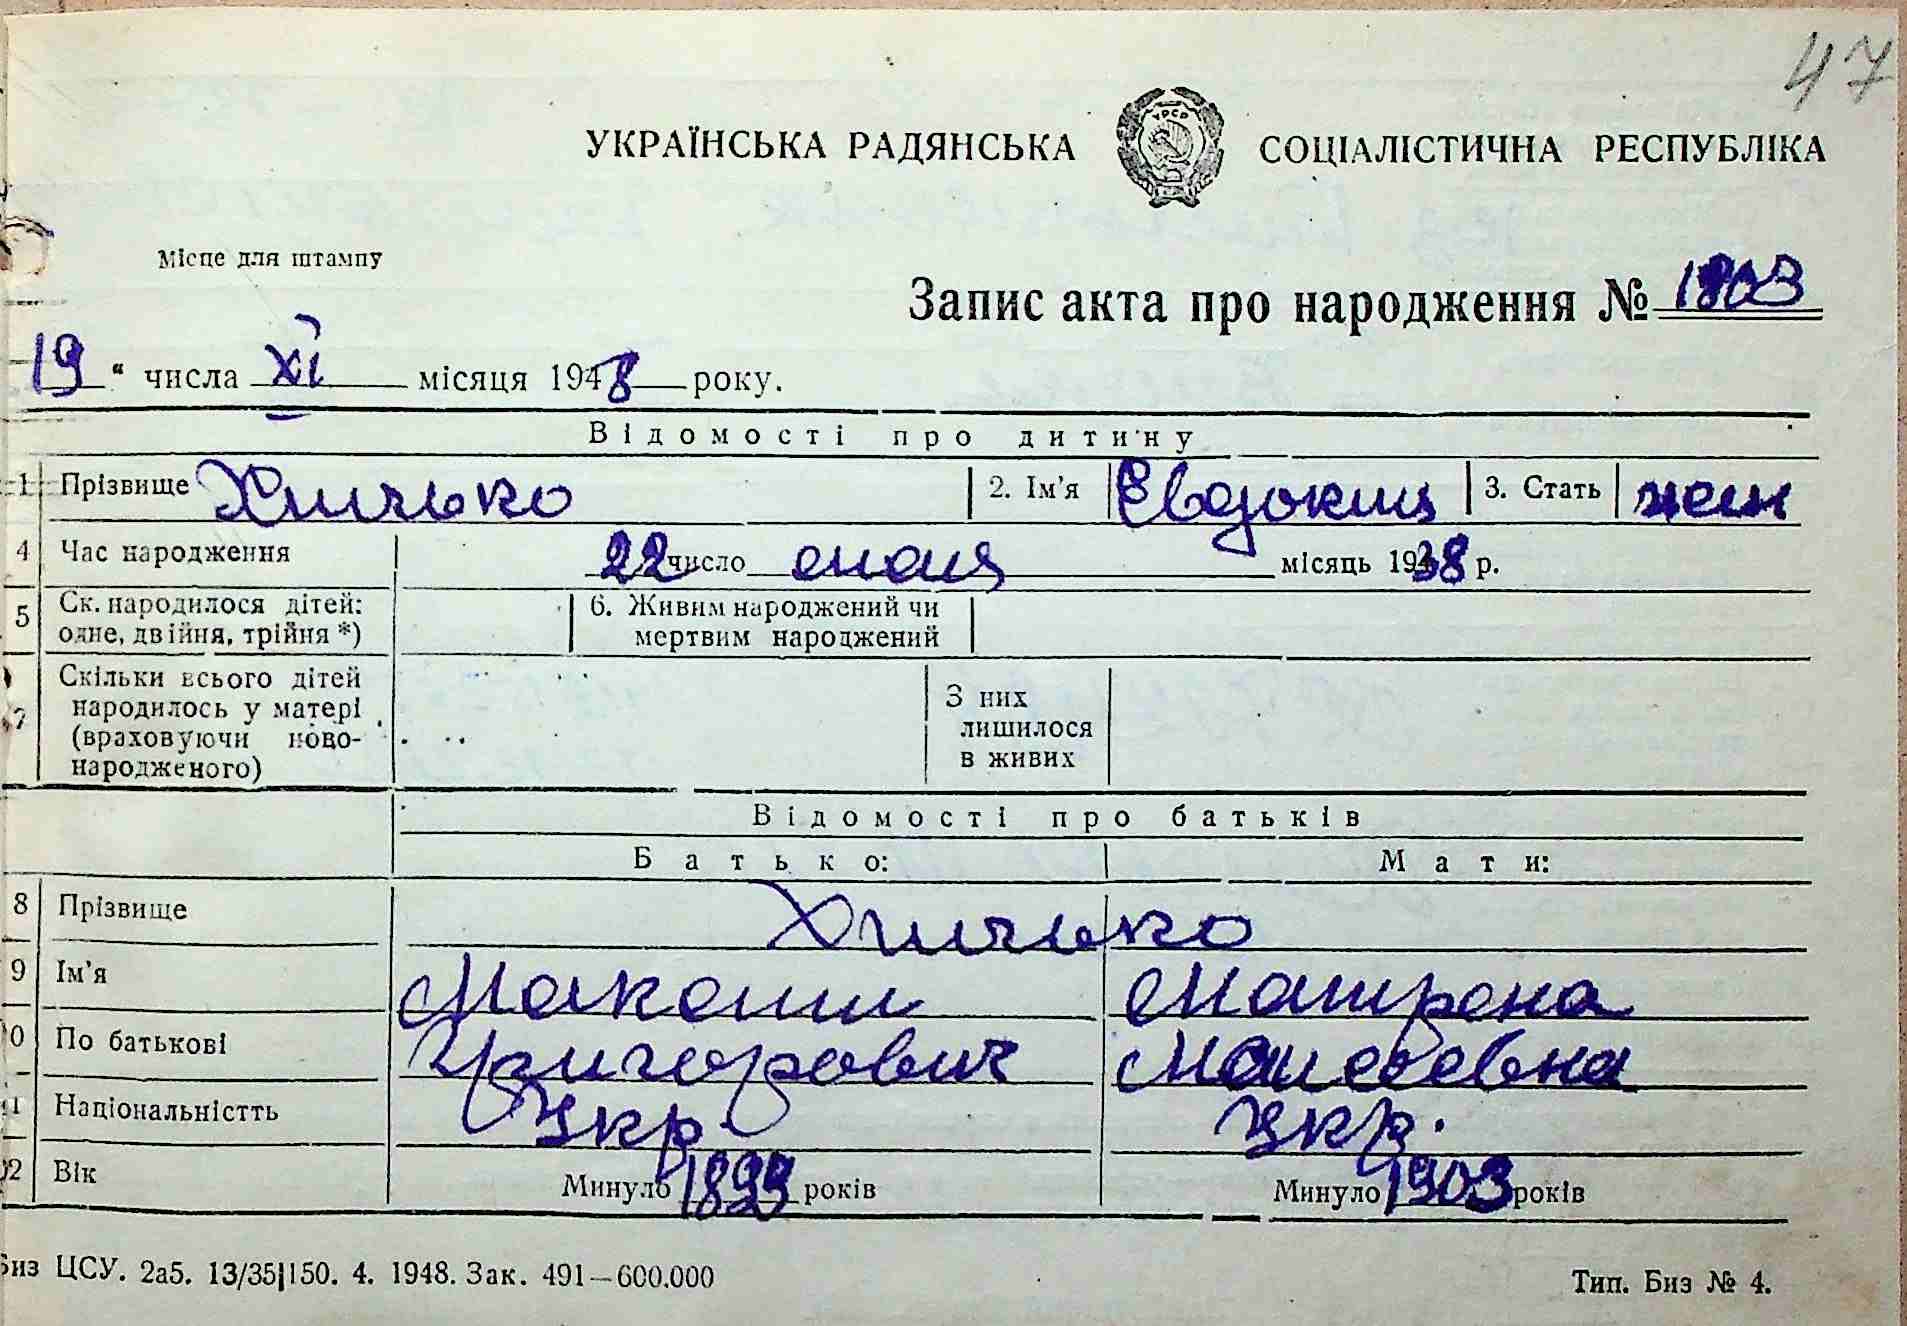 47
УКРАЇНСЬКА РАДЯНСЬКА СОЦІАЛІСТИЧНА РЕСПУБЛІКА
УРСР
Місце для штампу
Запис акта про народження № 1803
19 " числа XI місяця 1948 року.
Відомості про дитину
1 Прізвище Хичько 2. Ім'я Євдокия 3. Стать жен
4 Час народження 22 число июля місяць 1938 р.
5 Ск. народилося дітей: одне, двійня, трійня *) 6. Живим народжений чи мертвим народжений
7 Скільки всього дітей народилось у матері (враховуючи новонародженого) З них лишилося в живих
Відомості про батьків
Батько: Мати:
8 Прізвище Хичько
9 Ім'я Максим Матрена
0 По батькові Григорович Матвеевна
1 Національністть Укр. Укр.
2 Вік Минуло 1899 років Минуло 1903 років
Биз ЦСУ. 2а5. 13/35|150. 4. 1948. Зак. 491—600.000 Тип. Биз № 4.